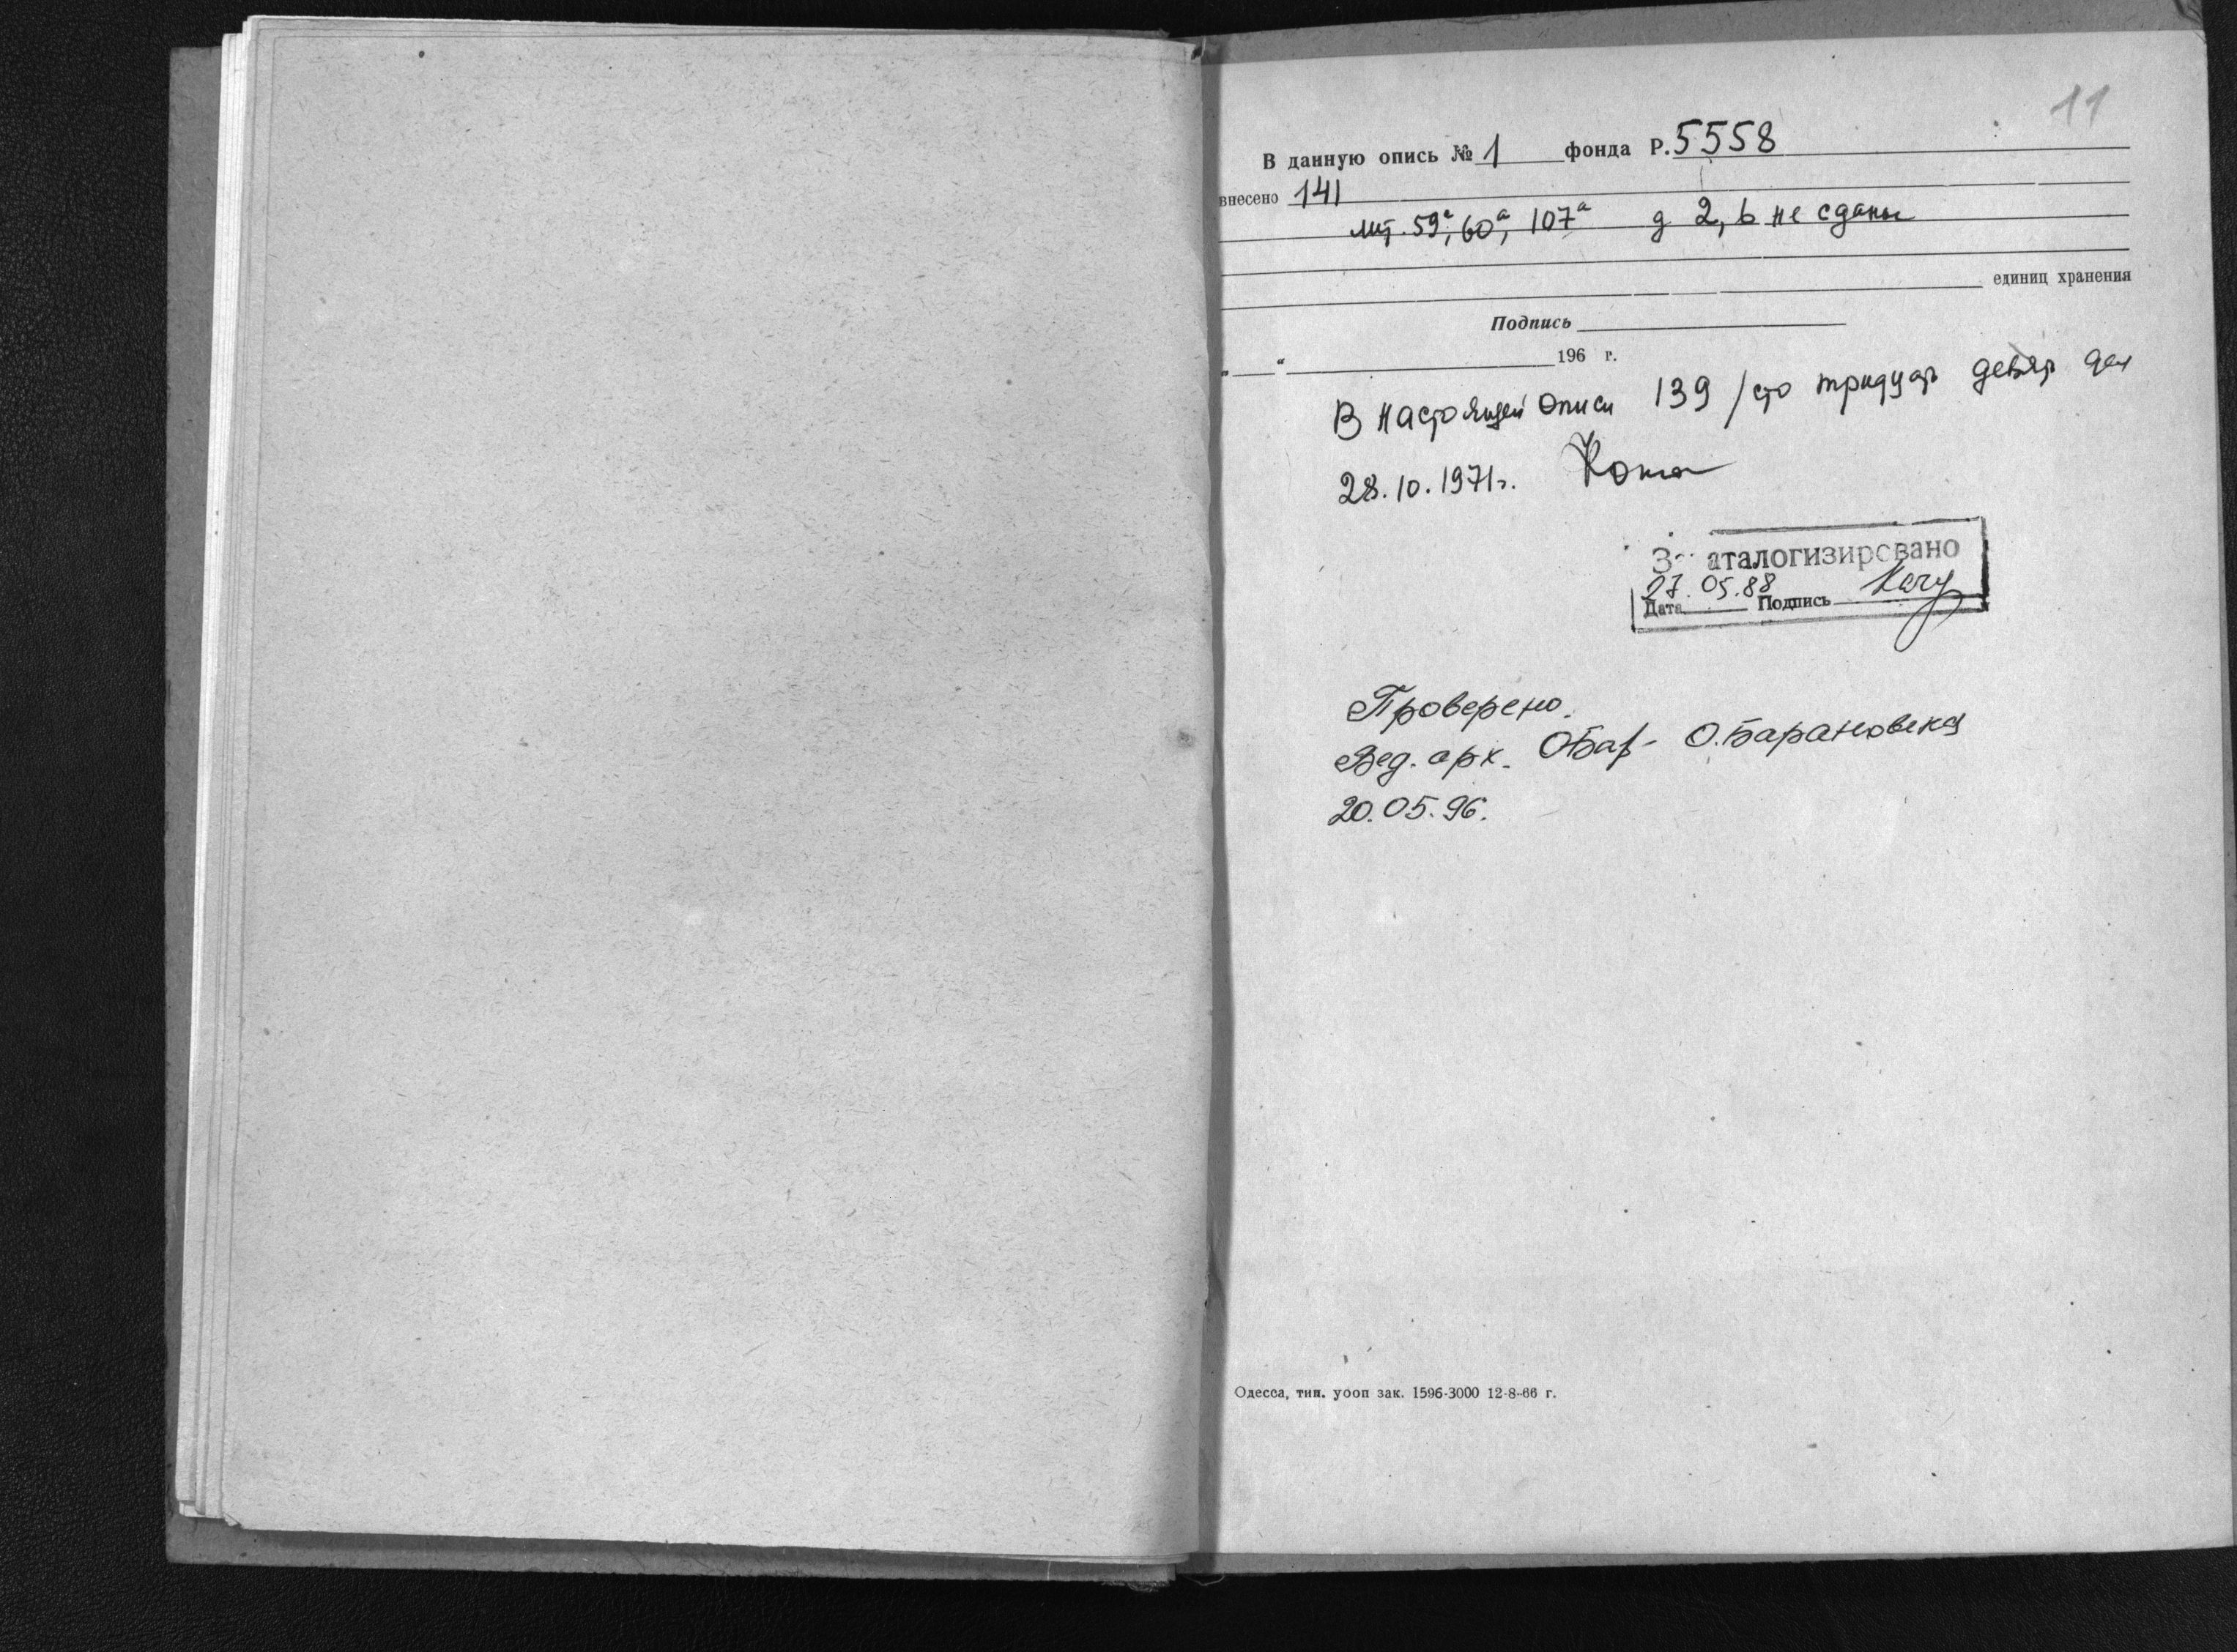 11
В данную опись № 1 фонда Р. 5558
внесено 141
лит. 59а, 60а, 107а д 2, 6 не сданы
единиц хранения
Подпись
„ “ 196 г.
В настоящей описи 139 /сто тридцать девять дел
28.10.1971г.
Закаталогизировано
27.05.88
Дата Подпись
Проверено.
Вед. арх. О.Барановская
20.05.96.
Одесса, тип. уооп зак. 1596-3000 12-8-66 г.